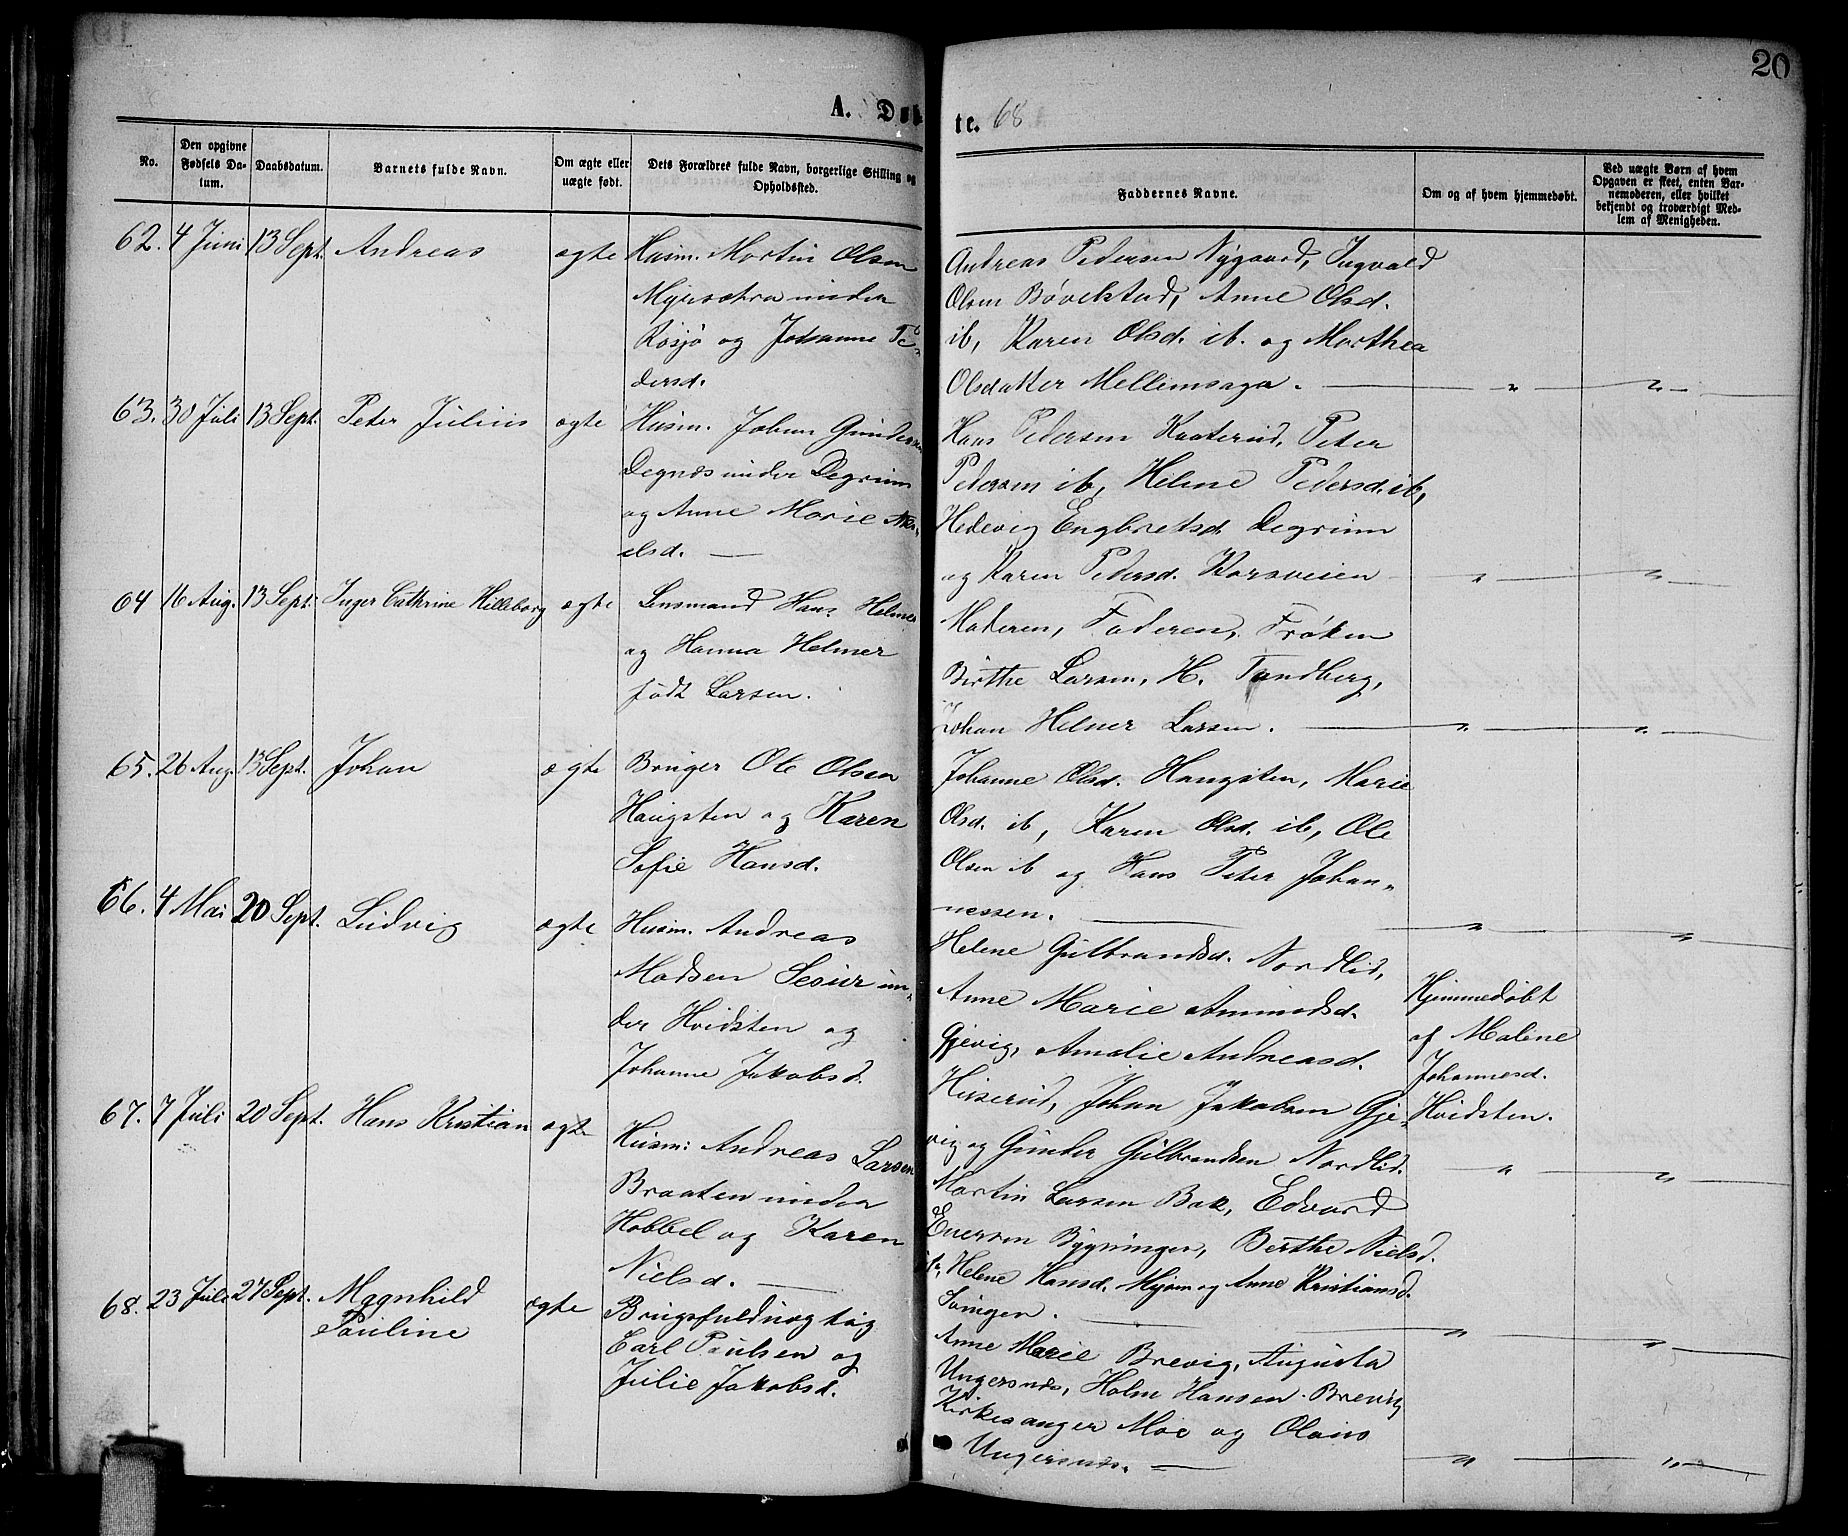 20
A. Døb
te. 68
No.
Den opgivne Fødsels Datum.
Daabsdatum.
Barnets fulde Navn.
Om ægte eller uægte født.
Dets Forældres fulde Navn, borgerlige Stilling og Opholdssted.
Faddernes Navne.
Om og af hvem hjemmedøbt.
Ved uægte Børn af hvem Opgaven er skeet, enten Barnemoderen, eller hvilket bekjendt og troværdigt Medlem af Menigheden.
62. 4 Juni 13 Sept. Andreas ægte
Husm. Martin Olsen
Myrsætra under
Røsjø og Johanne Pe-
dersd.
Andreas Pedersen Nygaard, Ingvald
Olsen Bøvelstad, Anne Olsd.
ib, Karen Olsd. ib. og Marthea
Olsdatter Mellemsaga. — " — " —
63. 30 Juli 13 Sept. Peter Julius ægte
Husm. Johan Gundersen
Degnæs under Degrum
og Anne Marie
elsd. —
Hans Pedersen Kaaterud, Peter
Pedersen ib, Helene Pedersd. ib,
Hedevig Engbretsd. Degrum
og Karen Pedersd. Korsveien — " — " —
64 16 Aug. 13 Sept. Inger Cathrine Hilleborg ægte
Lensmand Hans Helmer
og Hanna Helmer
født Larsen.
Moderen, Faderen, Frøken
Birthe Larsen, H. Tandberg,
Johan Helmer Larsen. — " — " —
65. 26 Aug. 13 Sept. Johan ægte
Bruger Ole Olsen
Haugsten og Karen
Sofie Hansd.
Johanne Olsd. Haugsten, Marie
Olsd. ib, Karen Olsd. ib, Ole
Olsen ib og Hans Peter Johan-
nessen. — " — " —
66. 4 Mai 20 Sept. Ludvig ægte
Husm. Andreas
Madsen un-
der Hvidsten og
Johanne Jakobsd.
Helene Gulbrandsd. Nordlid,
Anne Marie Ammundsd.
Gjevig, Amalie Andreasd.
Hisserud, Johan Jakobsen Gje-
vig og Gunder Gulbrandsen Nordlid.
Hjemmedøbt
af Malene
Johannesd.
Hvidsten.
67. 7 Juli 20 Sept. Hans Kristian ægte
Husm: Andreas Larsen
Braaten under
Hobbel og Karen
Nielsd. —
— " — " —
Martin Larsen Bak, Edvard
Evensen Bygninger, Berthe Nielsd.
ib, Helene Hansd. Mjøm og Anne Kristiansd.
Svingen. — " — " —
68. 23 Juli 27 Sept. Magnhild
Pauline ægte
Brugsfuldmægtig
Carl Paulsen og
Julie Jakobsd.
Anne Marie Brevig, Augusta
Ungersnæs, Holm Hansen Brevig
Kirkesanger Moe og Olaus
Ungersnæs. — " — " —